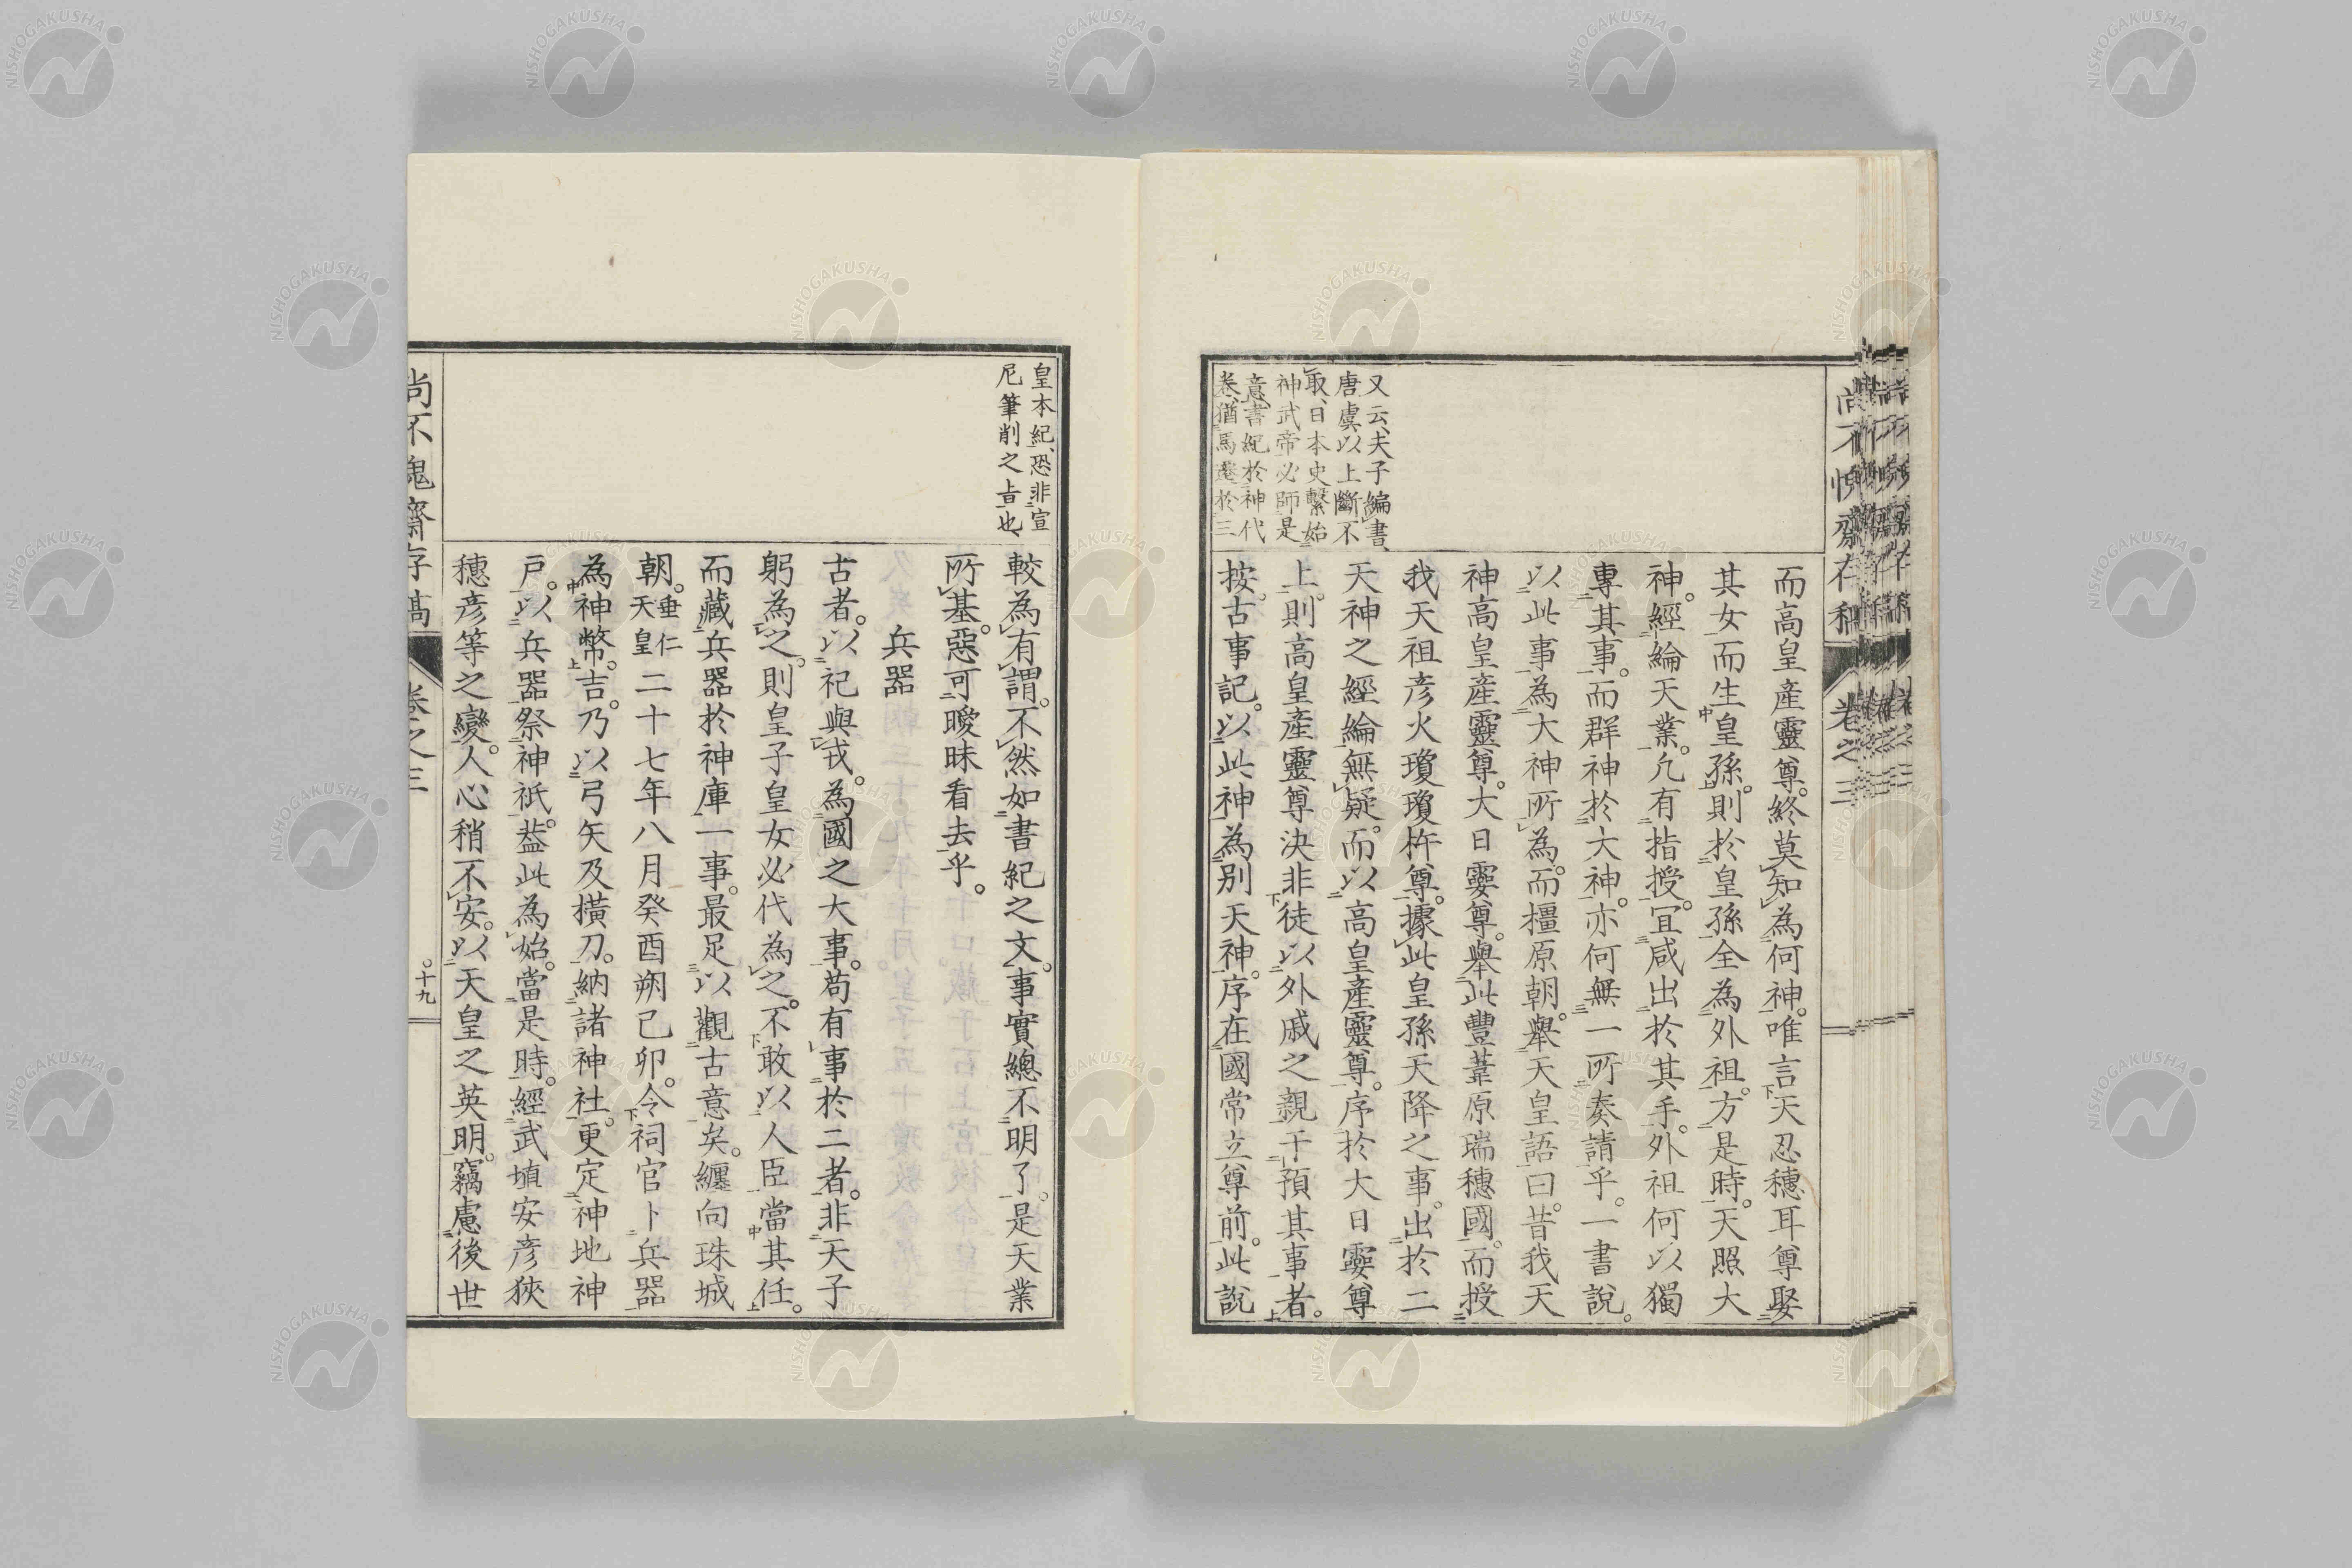 又云、夫子編書、
唐虞以上斷不
取、日本史繫始
神武帝必師是
意書紀於神代
卷、猶馬遷於三
而高皇產靈尊。終莫知為何神。唯言天忍穗耳尊娶
其女而生皇孫。則於皇孫全為外祖。方是時。天照大
神。經綸天業。凢有指授。宜咸出於其手。外祖何以獨
專其事。而群神於大神。亦何無一所奏請乎。一書說。
以此事為大神所為。而橿原朝。舉天皇語曰。昔我天
神高皇產靈尊。大日孁尊。舉此豐葦原瑞穗國。而授
我天祖彥火瓊瓊杵尊。據此皇孫天降之事。出於二
天神之經綸無疑。而以高皇產靈尊。序於大日孁尊
上。則高皇產靈尊決非徒以外戚之親干預其事者。
按。古事記。以此神為別天神。序在國常立尊前。此說
皇本紀、恐非宣
尼筆削之旨也、
較為有謂。不然如書紀之文。事實總不明了。是天業
所基。惡可曖昧看去乎。
兵器
古者。以祀與戎。為國之大事。苟有事於二者。非天子
躬為之。則皇子皇女必代為之。不敢以人臣當其任。
而藏兵器於神庫一事。最足以觀古意矣。纏向珠城
朝。垂仁天皇二十七年八月癸酉朔己卯。令祠官卜兵器
為神幣。吉。乃以弓矢及橫刀。納諸神社。更定神地神
戶。以兵器祭神祇。葢此為始。當是時。經武埴安彥狹
穗彥等之變。人心稍不安。以天皇之英明。竊慮後世
尚不愧齋存稿
卷之三
十九